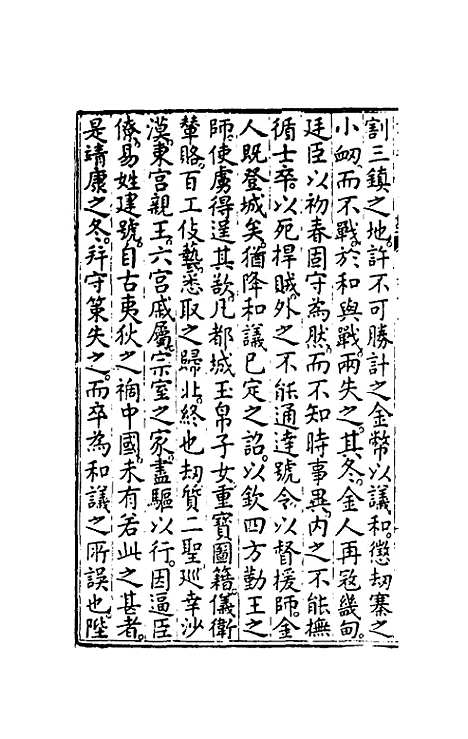 割三鎮之地許不可勝計之金幣以議和懲刼寨之
小衂而不戰於和與戰兩失之其冬金人再冦畿甸
廷臣以初春固守為然而不知時事異内之不能撫
循士卒以死捍賊外之不能通達號令以督援師金
人既登城矣猶降和議已定之詔以欽四方勤王之
師使虜得逞其欲凡都城玉帛子女重寶圖籍儀衛
輦賂百工伎藝悉取之歸北終也刼質二聖巡幸沙
漠東宮親王六宮戚屬宗室之家盡驅以行因逼臣
僚易姓建號自古夷狄之禍中國未有若此之甚者
是靖康之冬并守策失之而卒為和議之所誤也陛